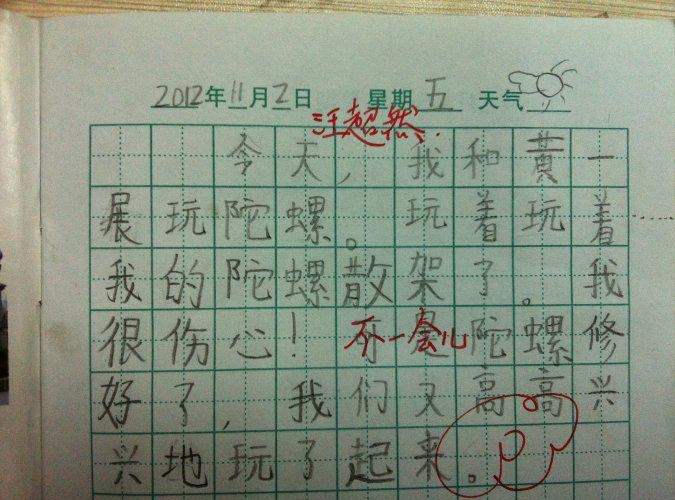 2012年11月2日 星期五 天气
汪超然
今天，我和黄一
展玩陀螺。玩着玩着
我的陀螺散架了。我
很伤心！不一会儿陀螺修
好了，我们又高高兴
兴地玩了起来。